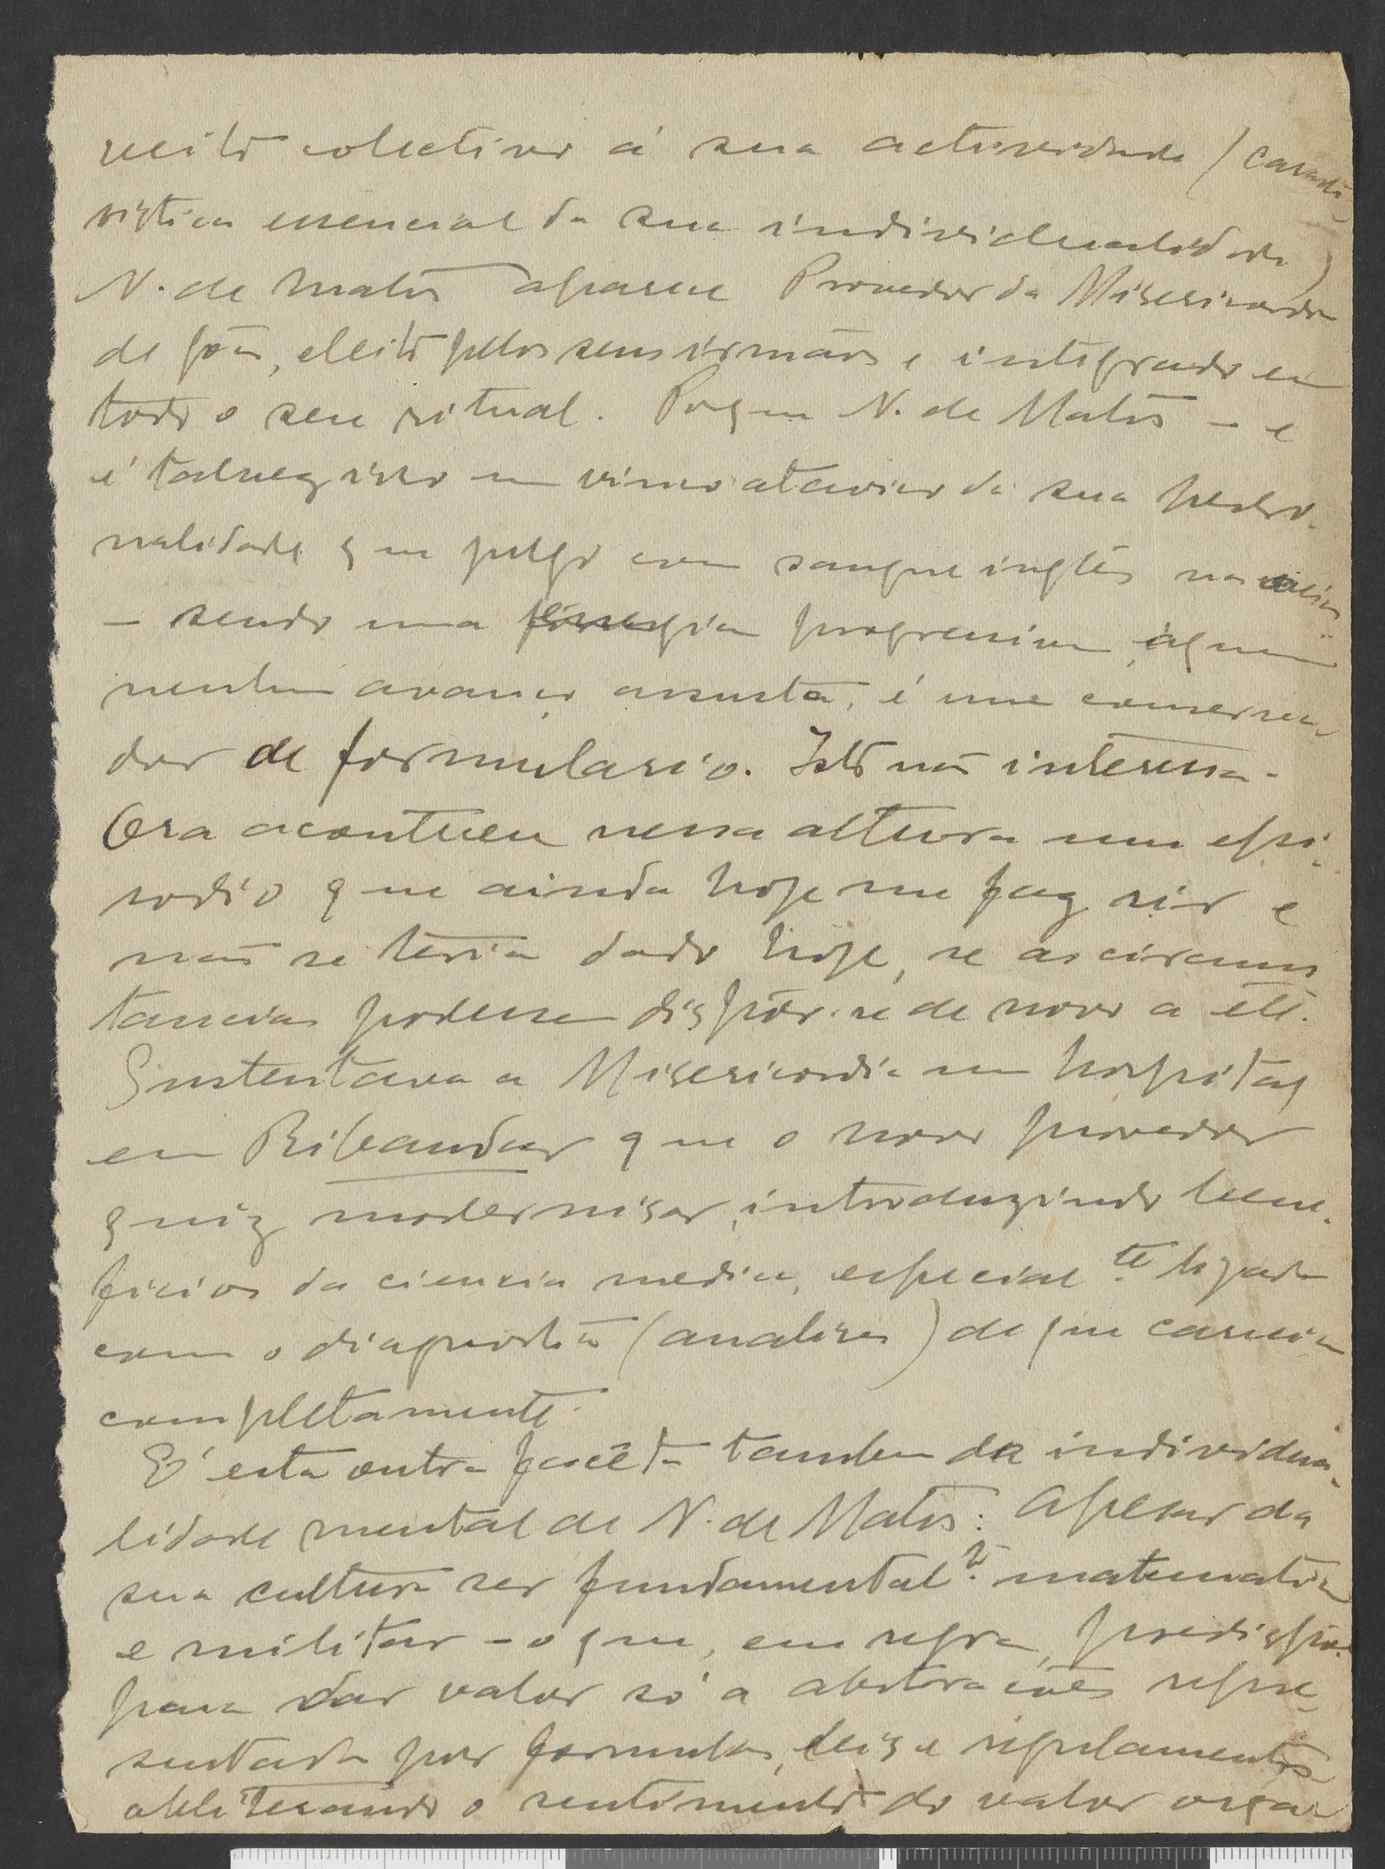 veito colectivo á sua actividade (caracte-
ristica essencial da sua individualidade)
N. de Matos aparece Provedor da Misericordia
de Gôa, eleito pelos seus irmãos e integrado em
todo o seu ritual. Porque N. de Matos – e
é talvez isso um vinco atavico da sua perso-
nalidade que julgo com sangue inglês nas veias
– sendo uma energia progressiva, a quem
nenhum avanço assusta, é um conserva-
dor de formulario. Isto não interessa.
Ora aconteceu nessa altura um epi-
sodio que ainda hoje me faz rir e
não se teria dado hoje, se as circums
tancias podessem dispôr-se de novo a ele.
Sustentava a Misericordia um hospital
em Ribandar que o novo provedor
quiz modernisar, introduzindo bene-
ficios da ciencia medica, especialte ligada
com o diagnostico (analises) de que carecia
completamente.
E' esta outra faceta tambem da individua-
lidade mental de N. de Matos: Apesar da
sua cultura ser fundamentalte matematica
e militar – o que, em regra, predispõe
para dar valor só a abstrações repre-
sentadas por formulas, leis e regulamentos
obliterando o sentimento do valor orga-